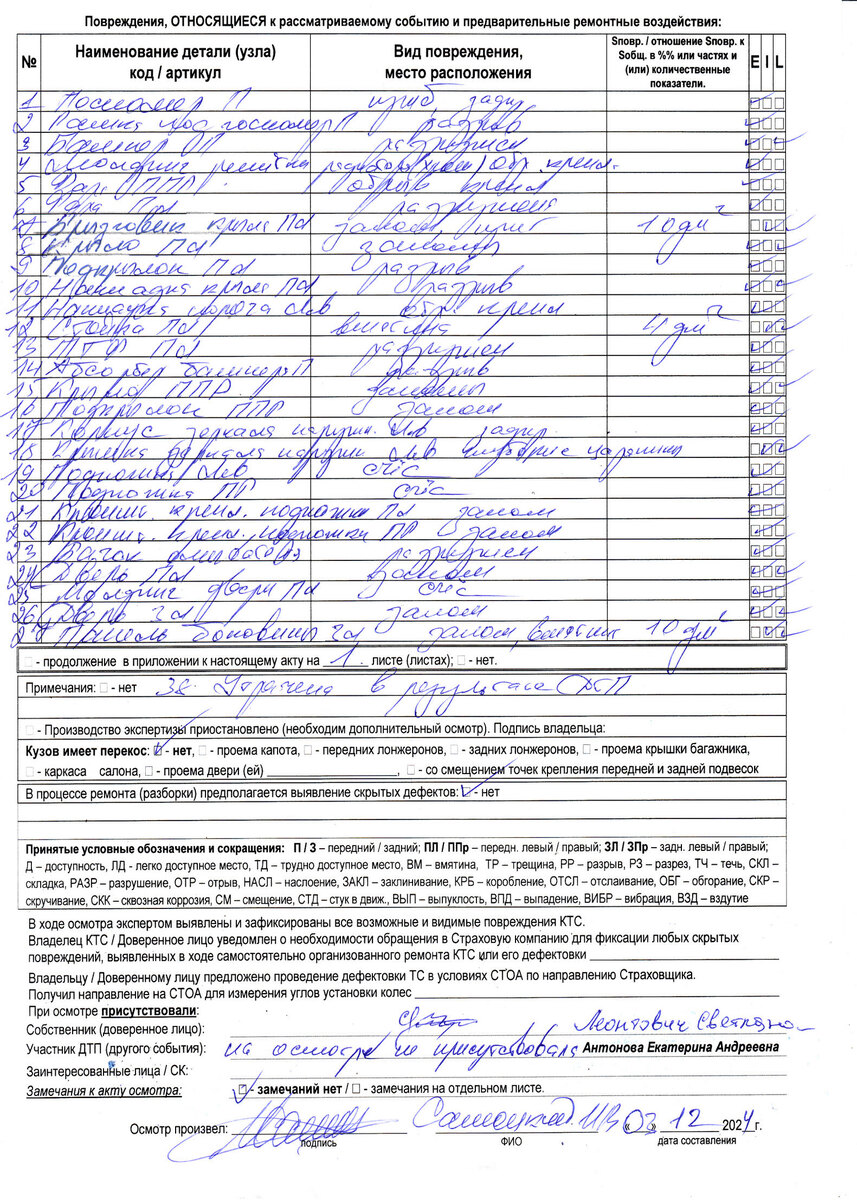 Повреждения, ОТНОСЯЩИЕСЯ к рассматриваемому событию и предварительные ремонтные воздействия:
№ Наименование детали (узла) код / артикул Вид повреждения, место расположения Sповр. / отношение Sповр. к Sобщ. в %% или частях и (или) количественные показатели. E I L
1 Госномер П изгиб, задир
2 Рамка под госномер П разрыв
3 Бампер П разрушен
4 Молдинг решетки обр. крепл.
5 Фара ППР обрыв крепл
6 Фара Пл разрушена
7 Брызговик крыла Пл залом, изгиб 10 дм²
8 Крыло Пл заломы
9 Подкрылок Пл разрыв
10 Накладка крыла Пл разрыв
11 Накладка порога лев обр. крепл
12 Стойка Пл вмятина 4 дм²
13 ПТФ Пл разрушен
14 Абсорбер бампера П разрыв
15 Крыло ППР. заломы
16 Подкрылок ППР залом
17 Корпус зеркала наружн. лев задир
18 Крышка зеркала наружн лев царапины
19 Подножка лев
20 Подножка ПР
21 Кроншт. крепл. подножки Пл залом
22 Кроншт. крепл. подножки ПР залом
23 Бачок омывателя разрушен
24 Дверь Пл залом
25 Молдинг двери Пл
26 Дверь Зл залом
27 Панель боковины Зл залом, вмятина 10 дм²
- продолжение в приложении к настоящему акту на 1 листе (листах); - нет.
Примечания: - нет Утрачена в результате ДТП
- Производство экспертизы приостановлено (необходим дополнительный осмотр). Подпись владельца:
Кузов имеет перекос: - нет, - проема капота, - передних лонжеронов, - задних лонжеронов, - проема крышки багажника,
- каркаса салона, - проема двери (ей) , - со смещением точек крепления передней и задней подвесок
В процессе ремонта (разборки) предполагается выявление скрытых дефектов: - нет
Принятые условные обозначения и сокращения: П / З – передний / задний; ПЛ / ППр – передн. левый / правый; ЗЛ / ЗПр – задн. левый / правый;
Д – доступность, ЛД - легко доступное место, ТД – трудно доступное место, ВМ – вмятина, ТР – трещина, РР – разрыв, РЗ – разрез, ТЧ – течь, СКЛ –
складка, РАЗР – разрушение, ОТР – отрыв, НАСЛ – наслоение, ЗАКЛ – заклинивание, КРБ – коробление, ОТСЛ – отслаивание, ОБГ – обгорание, СКР –
скручивание, СКК – сквозная коррозия, СМ – смещение, СТД – стук в движ., ВЫП – выпуклость, ВПД – выпадение, ВИБР – вибрация, ВЗД – вздутие
В ходе осмотра экспертом выявлены и зафиксированы все возможные и видимые повреждения КТС.
Владелец КТС / Доверенное лицо уведомлен о необходимости обращения в Страховую компанию для фиксации любых скрытых
повреждений, выявленных в ходе самостоятельно организованного ремонта КТС или его дефектовки
Владельцу / Доверенному лицу предложено проведение дефектовки ТС в условиях СТОА по направлению Страховщика.
Получил направление на СТОА для измерения углов установки колес
При осмотре присутствовали:
Собственник (доверенное лицо): Леонтович Светлана
Участник ДТП (другого события): на осмотре не присутствовала Антонова Екатерина Андреевна
Заинтересованные лица / СК:
Замечания к акту осмотра: - замечаний нет / - замечания на отдельном листе.
Осмотр произвел: «03» 12 2024 г.
подпись ФИО дата составления